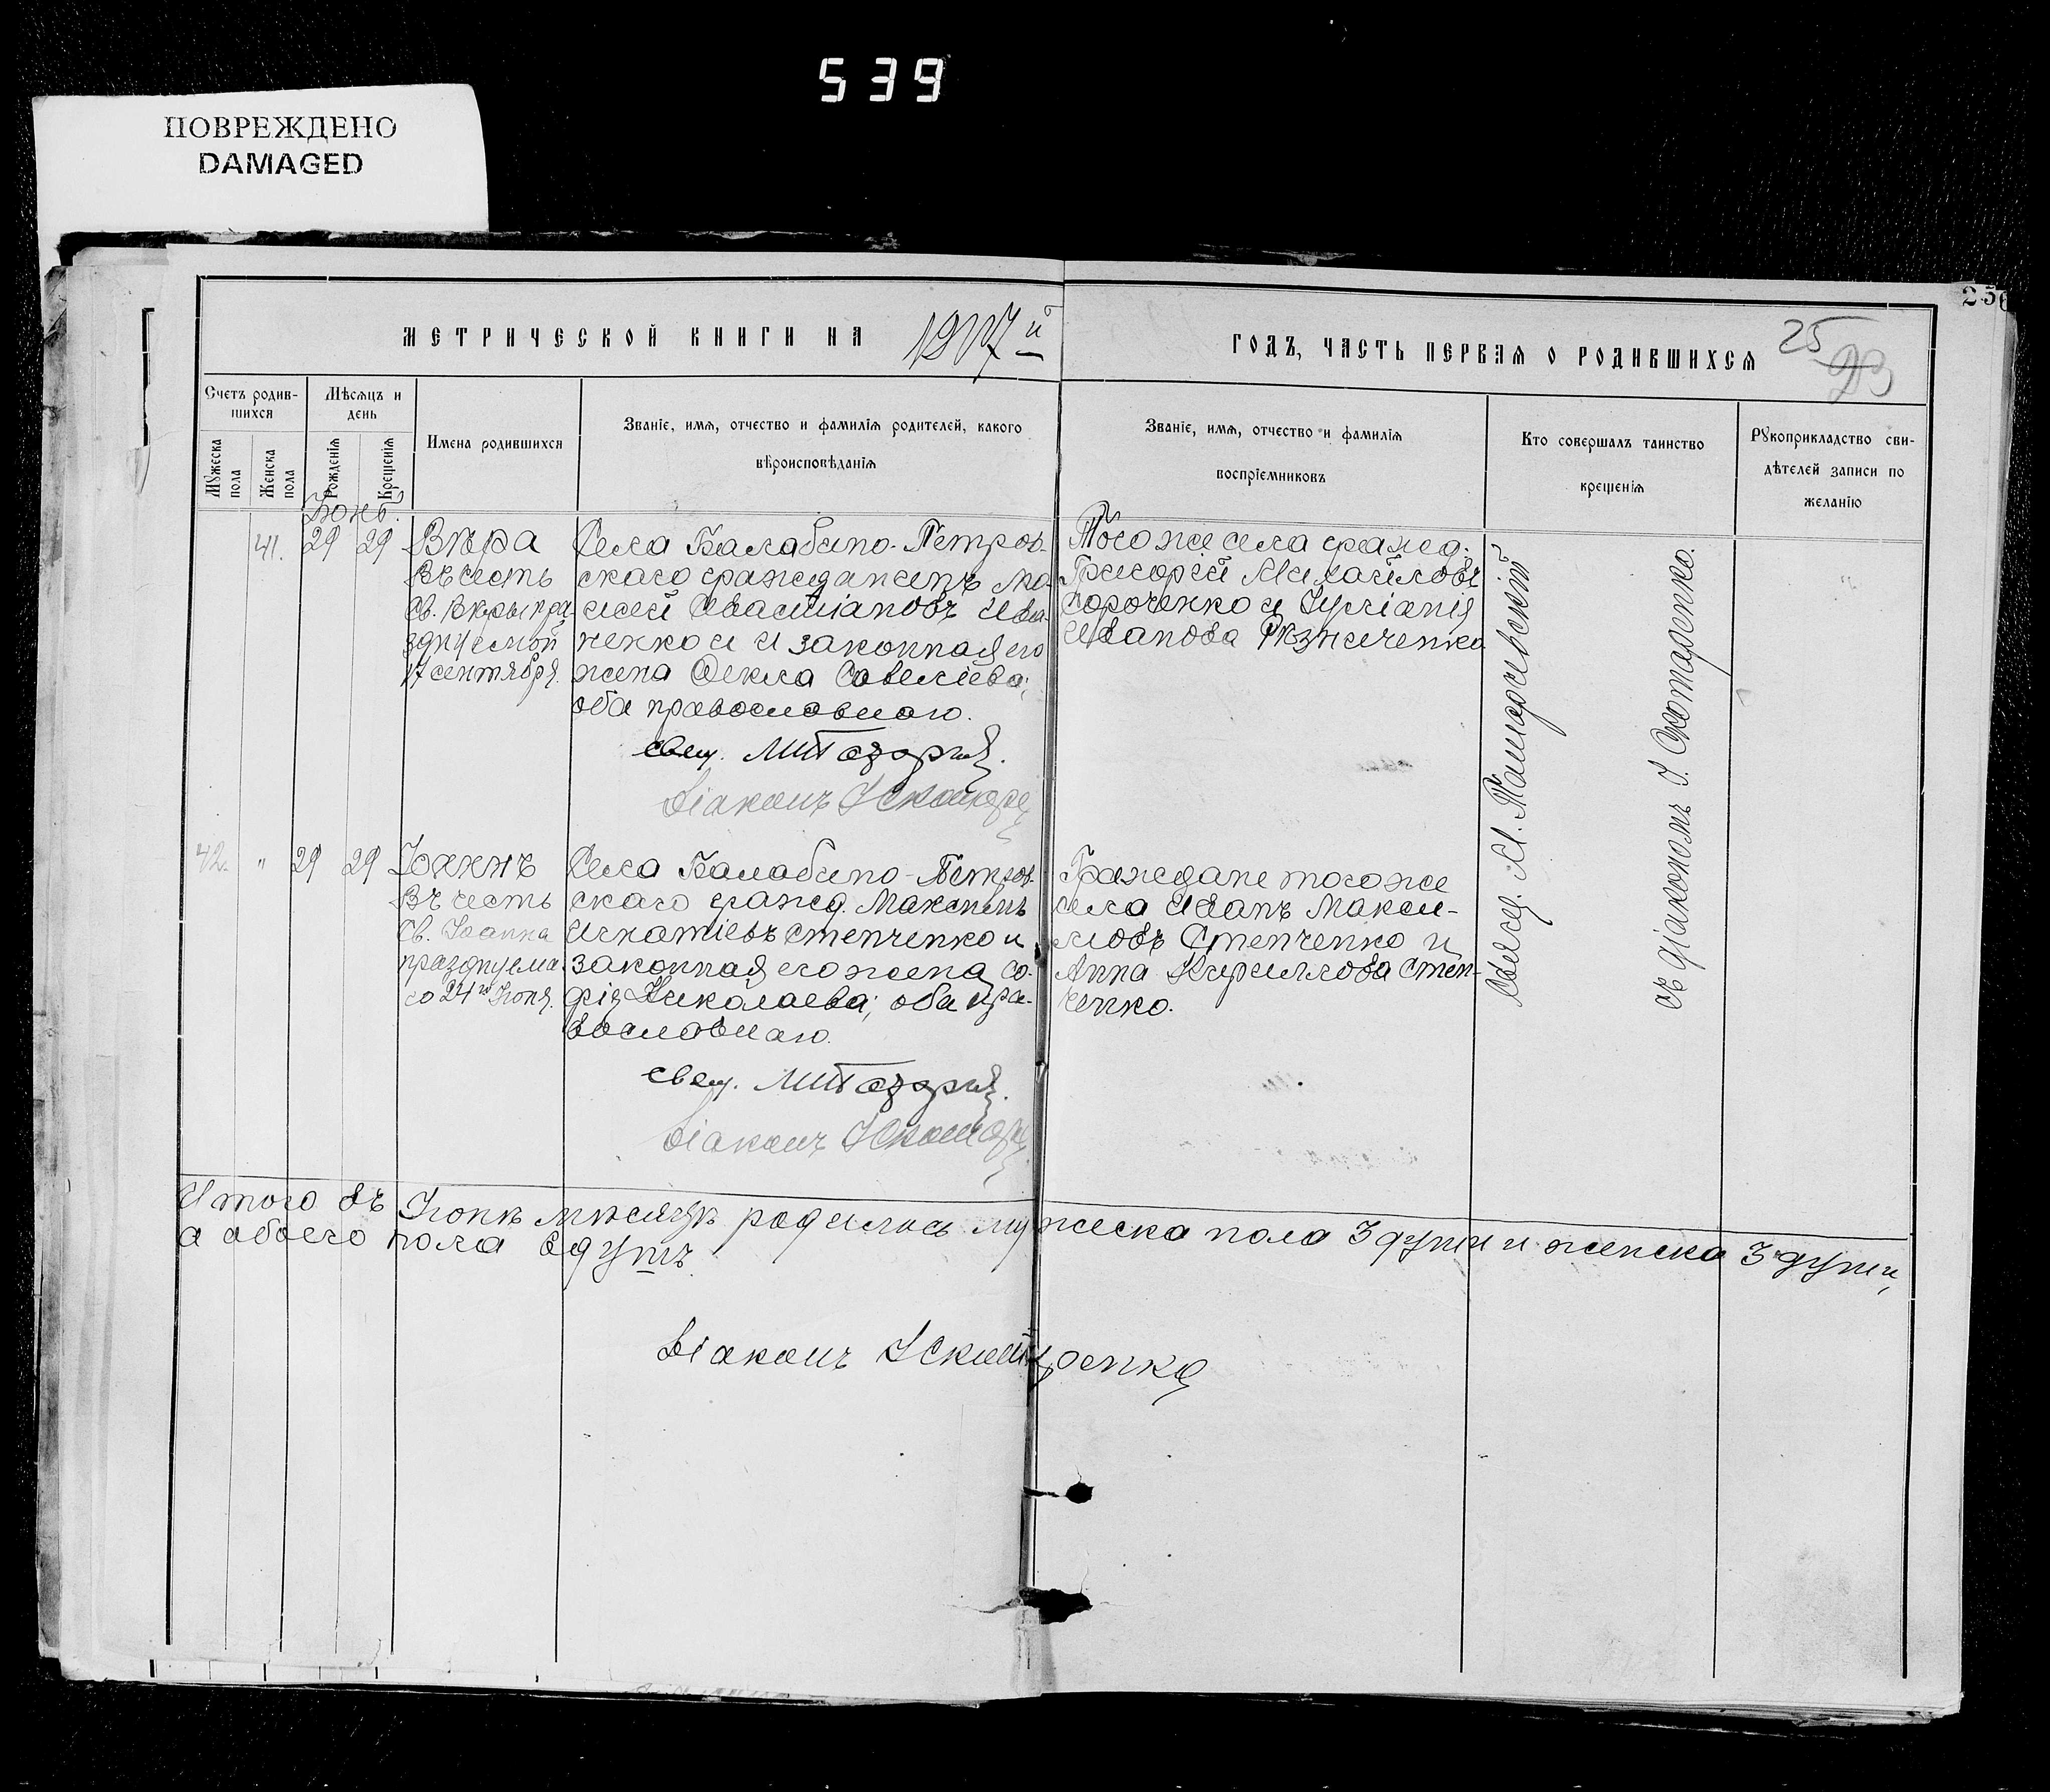 539
ПОВРЕЖДЕНО
DAMAGED
256
МЕТРИЧЕСКОЙ КНИГИ НА 1917й ГОДЪ, ЧАСТЬ ПЕРВАЯ О РОДИВШИХСЯ
25
Счетъ родив-
шихся
Мѣсяцъ и
день
Мужеска
пола
Женска
пола
Рожденія
Крещенія
Имена родившихся
Званіе, имя, отчество и фамилія родителей, какого
вѣроисповѣданія
Званіе, имя, отчество и фамилія
воспріемниковъ
Кто совершалъ таинство
крещенія
Рукоприкладство сви-
дѣтелей записи по
желанію
Іюнь.
41.
29
29
Вѣра
Въ честь
Св. Вѣры пра
зднуемой
17 сентября.
Села Балабино-Петров-
скаго гражданинъ Мо
исей Севастіановъ Ива-
ненко и законная его
жена Фекла Савеліева;
оба православнаго.
свящ.
Діаконъ І Скотаре
Того же села гражд.
Григорій Михайловъ
Сороченко и Іуліанія
Иванова Рѣзниченко
Свящ. М.
съ діакономъ І. Скотаренко.
42.
"
29
29
Іоаннъ
Въ честь
Св. Іоанна
празднуема
го 24го Іюня.
Села Балабино-Петров-
скаго гражд. Максимъ
Игнатіевъ Степченко и
законная его жена Со-
фія Николаева; оба пра-
вославнаго.
свящ.
Діаконъ І Скотаре
Граждане того же
села Иванъ Макси-
мовъ Степченко и
Анна Кириллова Степ-
ченко.
Итого въ Іюнѣ мѣсяцѣ родилось мужеска пола 3 души и женска 3 души,
а обоего пола 6 душъ.
Діаконъ І Скотаренко